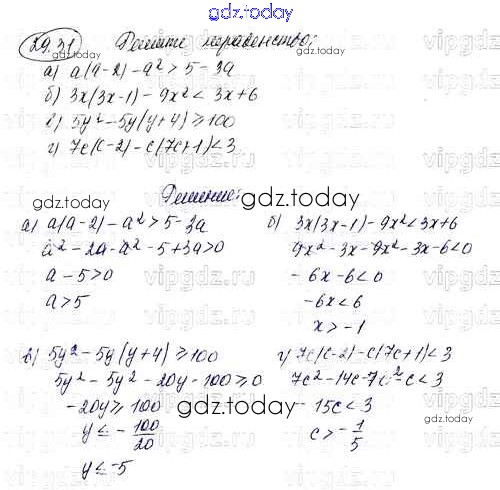 gdz.today
29.31 Решите неравенство:
gdz.today
а) a(a-2)-a²>5-3a
б) 3x(3x-1)-9x²<3x+6
в) 5y²-5y(y+4)≥100
г) 7c(c-2)-c(7c+1)<3
gdz.today
Решение:
gdz.today
а) a(a-2)-a²>5-3a
a²-2a-a²-5+3a>0
a-5>0
a>5
gdz.today
б) 3x(3x-1)-9x²<3x+6
9x²-3x-9x²-3x-6<0
-6x-6<0
-6x<6
x>-1
в) 5y²-5y(y+4)≥100
5y²-5y²-20y-100≥0
-20y≥100
y≤-100/20
y≤-5
gdz.today
г) 7c(c-2)-c(7c+1)<3
7c²-14c-7c²-c<3
-15c<3
c>-1/5
gdz.today
vipgdz.ru